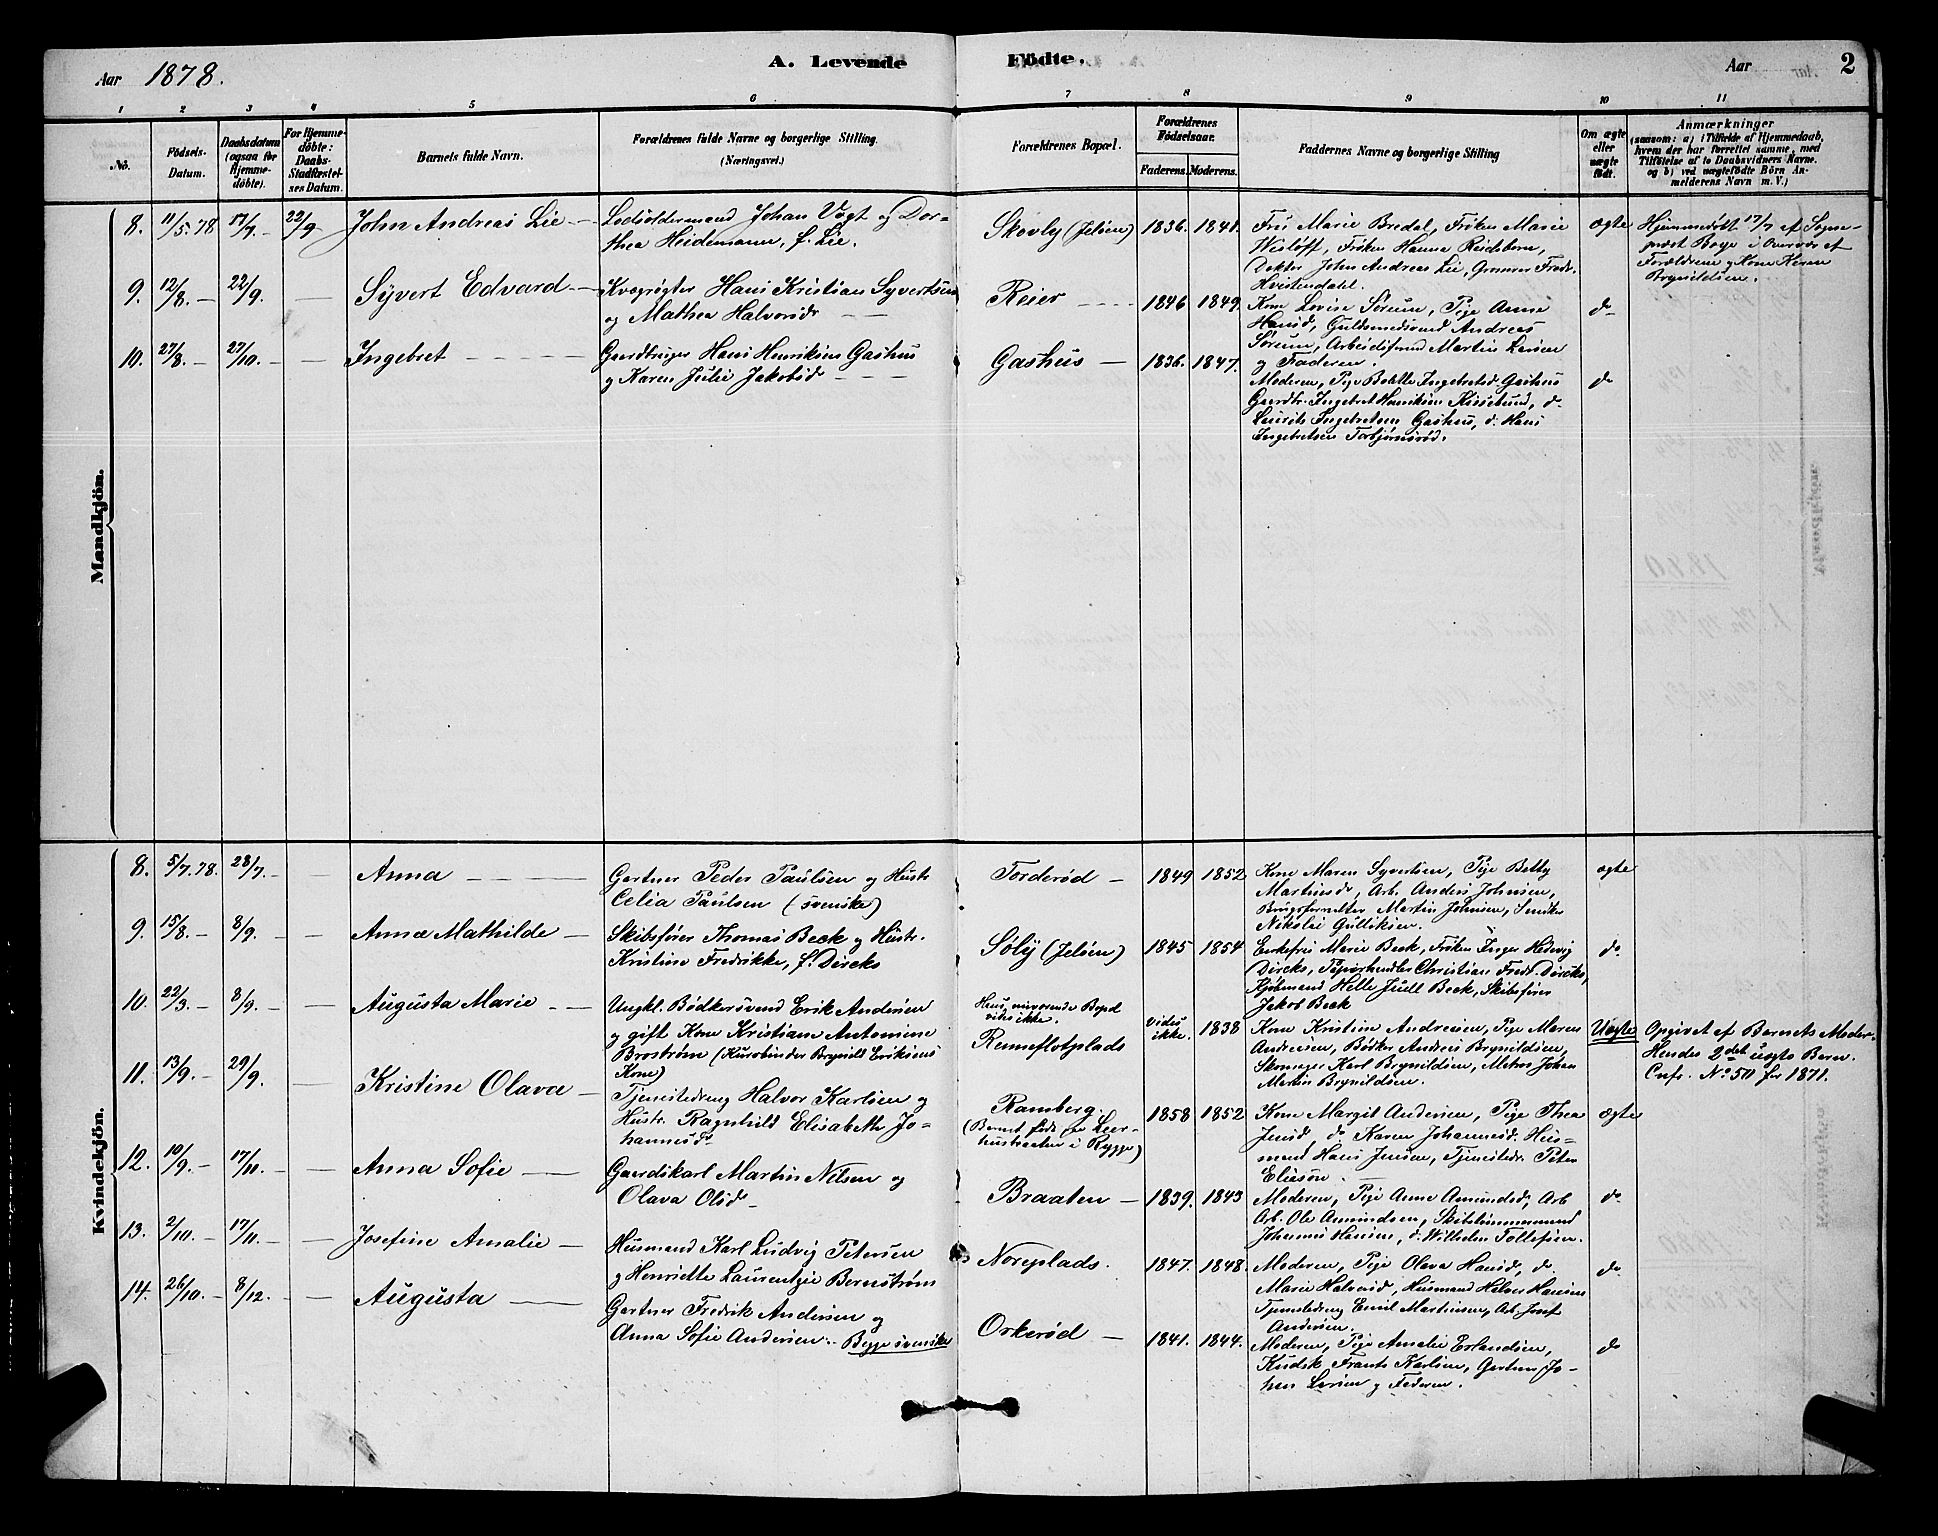 Aar 1878.
A. Levende Födte.
Aar 2
1 2 3 4 5 6 7 8 9 10 11
No.
Födsels-Datum.
Daabsdatum (ogsaa for Hjemme-döbte).
For Hjemme-döbte: Daabs-Stadfæstel-ses Datum.
Barnets fulde Navn.
Forældrenes fulde Navne og borgerlige Stilling.
(Næringsvei.)
Forældrenes Bopæl.
Forældrenes Födselsaar.
Faderens. Moderens.
Faddernes Navne og borgerlige Stilling
Om ægte eller uægte födt.
Anmærkninger
(saasom: a) i Tilfælde af Hjemmedaab,
hvem der har forrettet samme, med
Tilföielse af to Daabsvidners Navne.
og b) ved uægtefödte Börn An-
melderens Navn m. V.)
Mandkjön.
8. 11/5.78 17/7.- 22/9- John Andreas Lie -
Lodsoldermand Johan Vogt og Dor-
thea Heidemann, f. Lie.
Skovly (Jelöen) 1836. 1841.
Fru Marie Bredal, Fröken Marie
Wisloff, Fröken Hanna Reidsborn,
Doktor John Andreas Lie, Fredr.
Hvistendahl.
ægte
Hjemmedöbt 17/7 af Sogne-
præst Boye i Overvær af
Forældrene og Kone Karen
Brynildsen.
9. 12/8.- 22/9. - Syvert Edvard -
Kvægrögter Hans Kristian Syvertsen
og Mathea Halvorsdr - -
Reier - - - 1846 1849.
Kone Lovise Sörum, Pige Anne
Hansd, Guldsmedsvend Andreas
Sörum, Arbeidsmand Martin Larsen
og Faderen.
do
10. 27/8.- 27/10.- - Ingebret - - - -
Gaardbruger Hans Henriksen Gashus
og Karen Julie Jakobsd - - -
Gashus - 1836. 1847.
Moderen, Pige Bolette Ingebretsd. Gashus
Gaardbr. Ingebret Henriksen Kisselund, d.
Laurits Ingebretsen Gashus, d. Hans
Ingebretsen Torbjörnsröd.
do
Kvindekjön.
8. 5/7.78. 28/7.- - Anna - - - -
Gartner Peder Paulsen og Hustr
Celia Paulsen (svenske)
Torderöd - 1849 1852
Kone Maren Syvertsen, Pige Betty
Martinsd, Arb. Anders Johnsen,
Brugsforvalter Martin Johnsen, Snedker
Nikolai Gulliksen.
ægte
9. 15/8.- 8/9.- - Anna Mathilde -
Skibsförer Thomas Beck og Hustr.
Kristine Fredrikke, f. Dircks
Söly (Jelöen) 1845 1854
Enkefru Marie Beck, Fröken Inger Hedevig
Dircks, Papirhandler Christian Fredr. Dircks,
Kjöbmand Helle Juel Beck, Skibsförer
Jakob Beck
do
10. 22/3.- 8/9.- - Augusta Marie - -
Ungkl. Bödkersvend Erik Andersen
og gift Kone Kristiane Antomine
Broström (Kurvbinder Brynild Eriksens
Kone)
Hans nuværende Bopæl
vides ikke.
Renneflotplads
Vides ikke. 1838
Kone Kristine Andresen, Pige Maren
Andresen, Bödker Andreas Brynildsen,
Skomager Karl Brynildsen, Matros Johan
Martin Brynildsen.
Uægte
Opgivet af Barnets Moder.
Hendes 2det uægte Barn.
Cnfr. No 50 for 1871.
11. 13/9.- 29/9.- Kristine Olava -
Tjenestedreng Halvor Karlsen og
Hustr. Ragnhild Elisabeth Jo-
hannesdr
Ramberg.
(Barnet födt paa Leer-
husbraaten i Rygge)
1858 1852
Kone Margit Andersen, Pige Thea
Jensd do Karen Johannesd. Hus-
mand Hans Jensen, Tjenestedr. Peter
Eliasön.
ægte
12. 10/9.- 17/11.- - Anna Sofie -
Gaardskarl Martin Nilsen og
Olava Olsd -
Braaten - 1839. 1843
Moderen, Pige Anne Amundsd, Arb
Arb. Ole Amundsen, Skibstömmermand
Johannes Hansen, d. Wilhelm Tollefsen.
do
13. 2/10.- 17/11.- - Josefine Amalie -
Husmand Karl Ludvig Petersen
og Henriette Laurentze Bernström
Noreplads. 1847. 1848.
Moderen, Pige Olava Hansd, d.
Marie Halvorsd, Husmand Halvor Hansen
Tjenestedreng Emil Martinsen, Arb. Josef
Andersen.
do
14. 26/10.- 8/12.- - Augusta -
Gartner Fredrik Andersen og
Anna Sofie Andersen - Begge svenske
Orkeröd - 1841. 1844.
Moderen, Pige Amalie Erlandsen,
Kudsk Frants Karlsen, Gartner Jo-
han Larsen og Faderen.
do